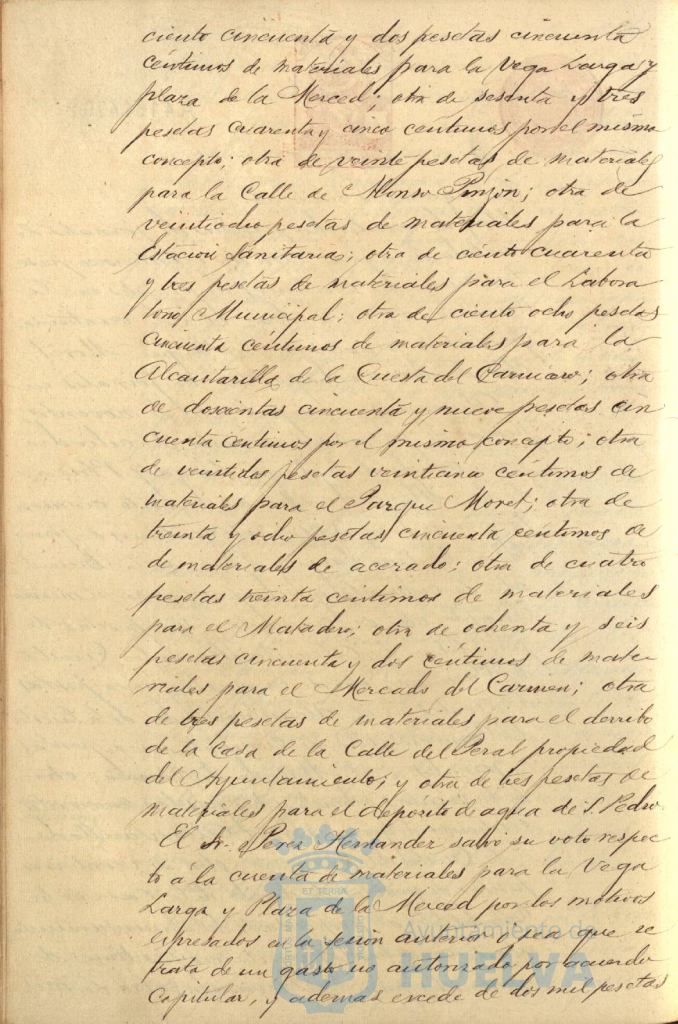 ciento cincuenta y dos pesetas cincuenta
céntimos de materiales para la Vega Larga y
plaza de la Merced; otra de sesenta y tres
pesetas cuarenta y cinco céntimos por el mismo
concepto; otra de veinte pesetas de materiales
para la Calle de Alonso Pinzón; otra de
veintiocho pesetas de materiales para la
Estación Sanitaria; otra de ciento cuarenta
y tres pesetas de materiales para el Labora
torio Municipal; otra de ciento ocho pesetas
cincuenta céntimos de materiales para la
Alcantarilla de la Cuesta del Carnicero; otra
de doscientas cincuenta y nueve pesetas cin
cuenta centimos por el mismo concepto; otra
de veintidos pesetas veinticinco céntimos de
materiales para el Parque Moret; otra de
treinta y ocho pesetas cincuenta centimos de
de materiales de acerado; otra de cuatro
pesetas treinta céntimos de materiales
para el Matadero; otra de ochenta y seis
pesetas cincuenta y dos céntimos de mate-
riales para el Mercado del Carmen; otra
de tres pesetas de materiales para el derribo
de la Casa de la Calle del Peral propiedad
del Ayuntamiento; y otra de tres pesetas de
materiales para el depósito de agua de S. Pedro.
El Sr. Perez Hernander salvó su voto respec
to á la cuenta de materiales para la Vega
Larga y Plaza de la Merced por los motivos
expresados en la sesión anterior o sea que se
trata de un gasto no autorizado por acuerdo
Capitular, y ademas excede de dos mil pesetas
ET TERRA
Ayuntamiento de
HUELVA